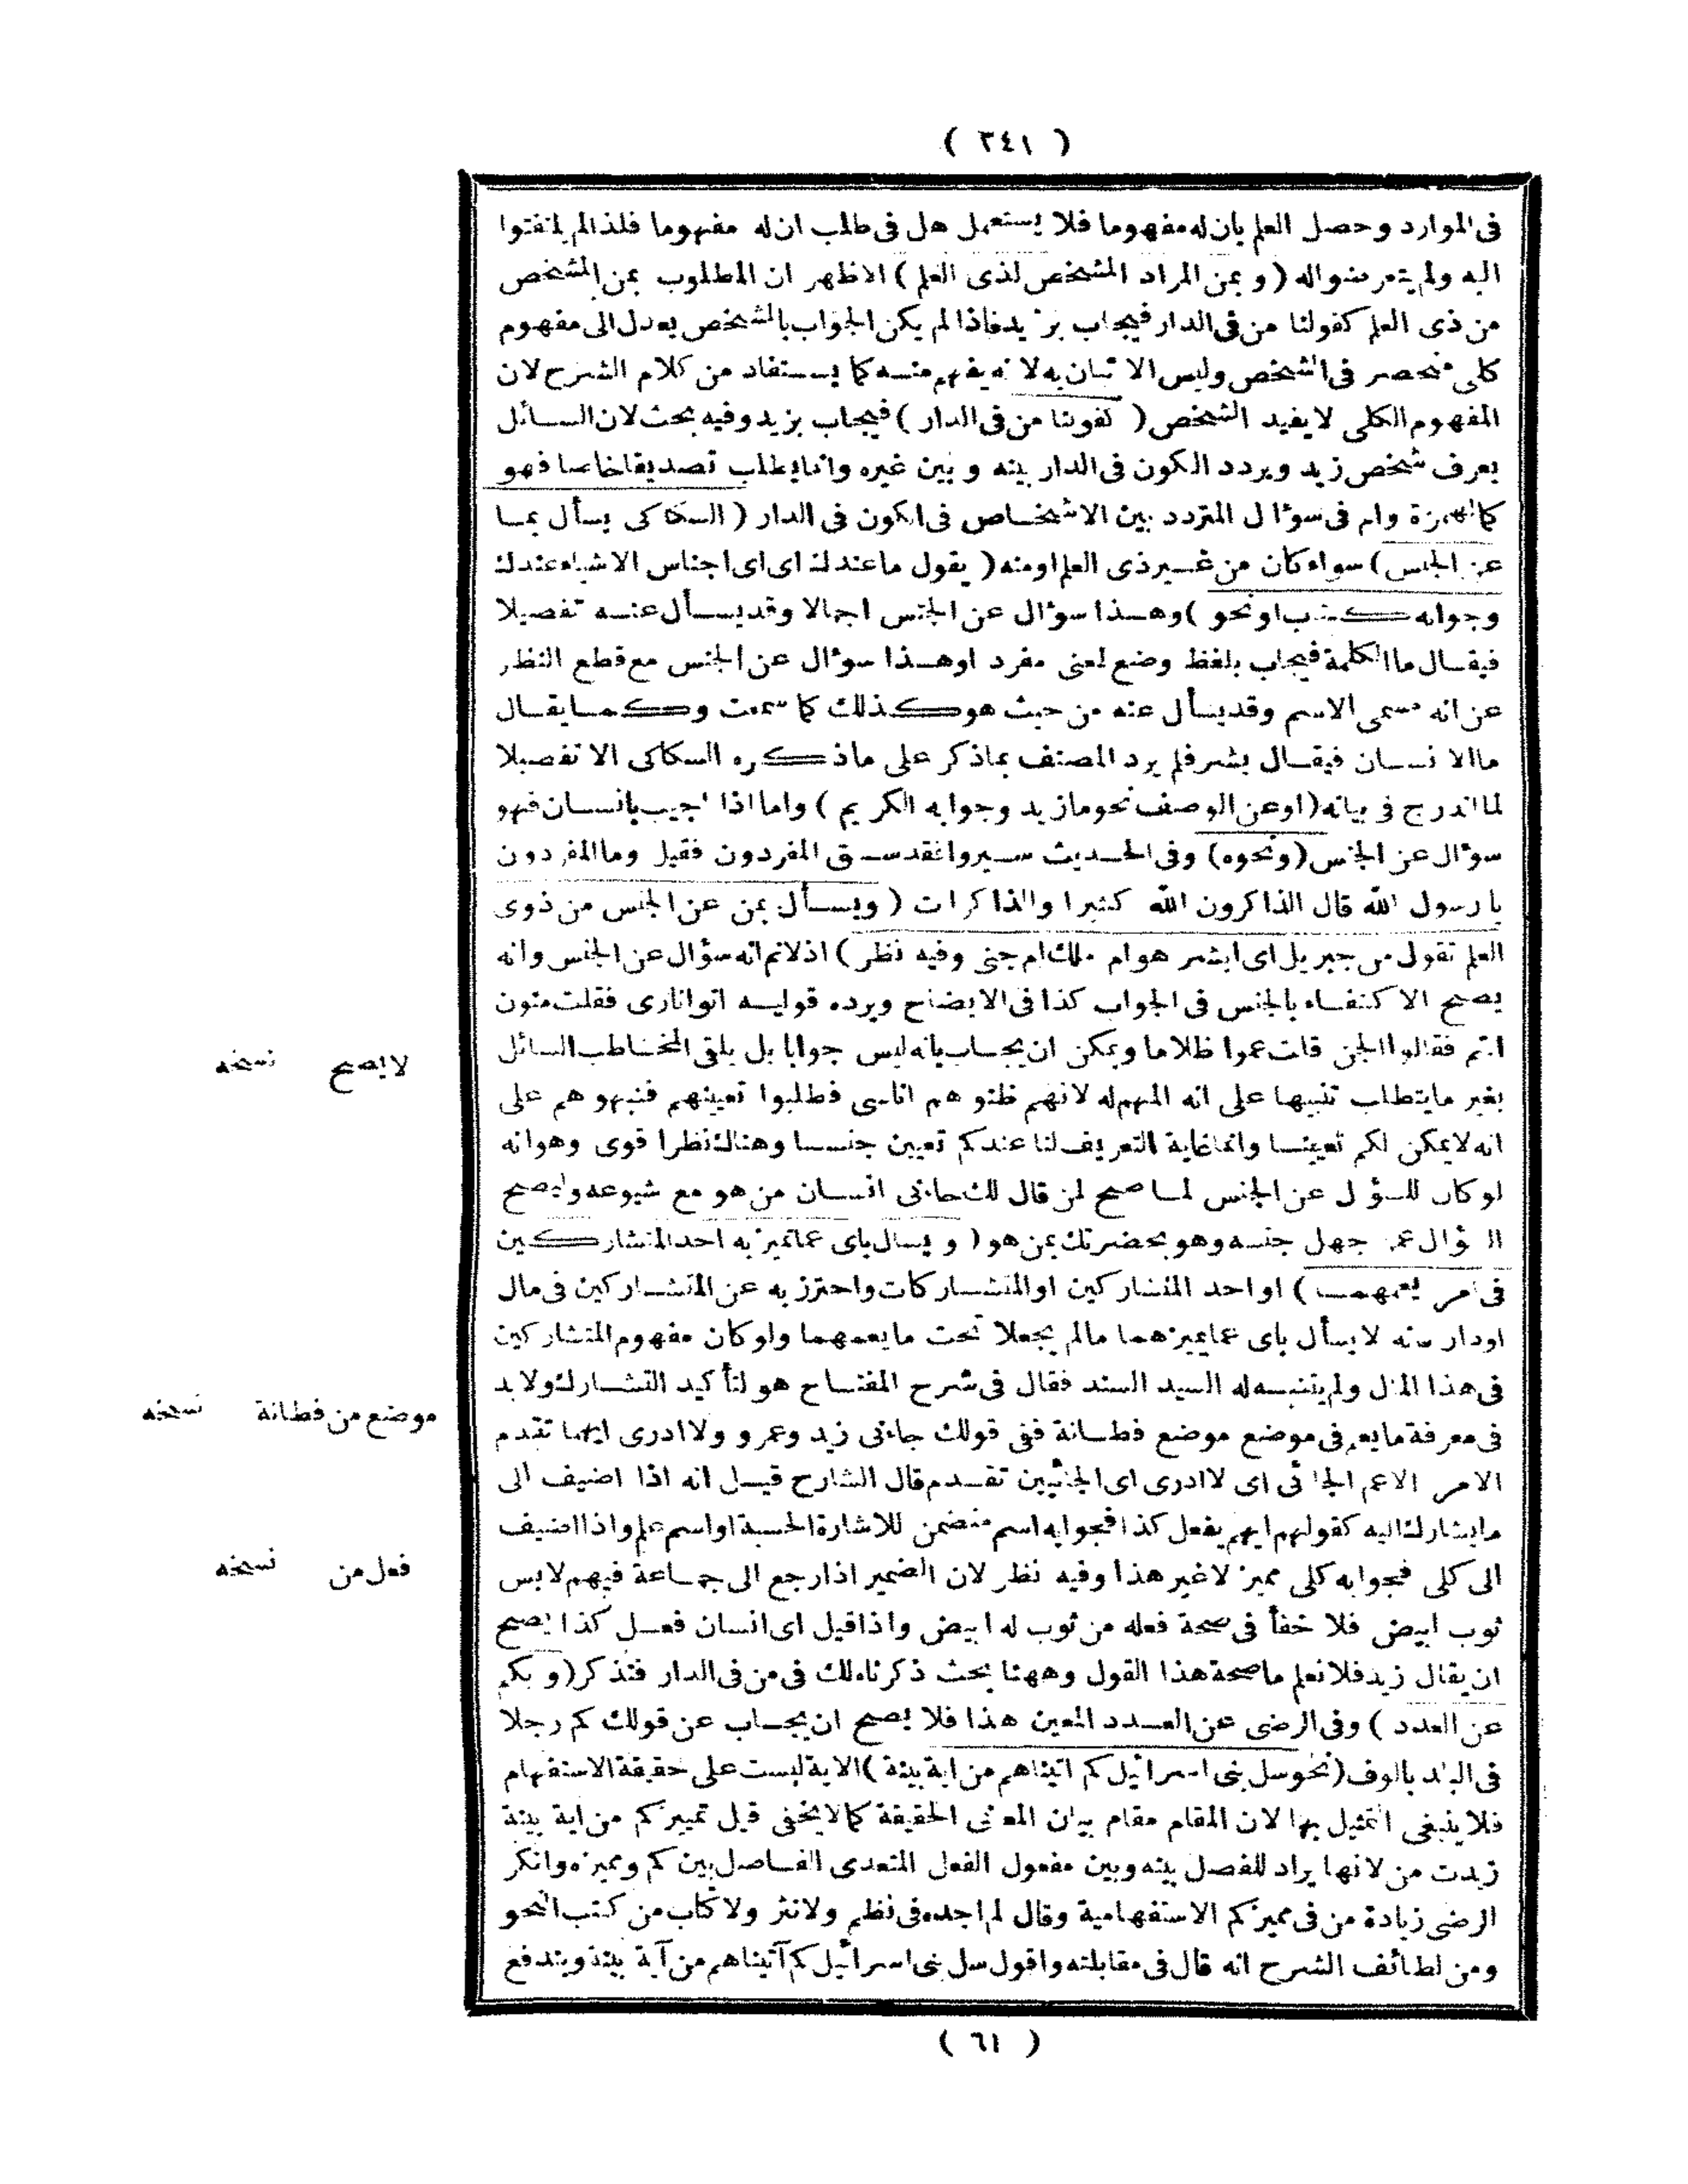 ( ٢٤١ )
فى الموارد وحصل العلم بان له مفهوما فلا يستعمل هل فى طلب ان له مفهوما فلذا لم يلتفتوا
اليه ولم يتعرضوا له ( و بمن المراد المشخص لذى العلم ) الاظهر ان المطلوب بمن المشخص
من ذى العلم كقولنا من فى الدار فيجاب بزيد فاذا لم يكن الجواب بالمشخص يعدل الى مفهوم
كلى منحصر فى الشخص وليس الاتيان به لانه يفهم منه كما يستفاد من كلام الشرح لان
المفهوم الكلى لا يفيد الشخص ( كقولنا من فى الدار ) فيجاب بزيد وفيه بحث لان السائل
يعرف شخص زيد ويردد الكون فى الدار بينه و بين غيره وانما يطلب تصديقا خاصا فهو
كالهمزة وام فى سؤال المتردد بين الاشخاص فى الكون فى الدار ( السكاكى يسأل بما
عن الجنس ) سواء كان من غير ذى العلم او منه ( يقول ما عندك اى اى اجناس الاشياء عندك
وجوابه كتاب او نحو ) وهذا سؤال عن الجنس اجمالا وقد يسأل عنه تفصيلا
فيقال ما الكلمة فيجاب بلفظ وضع لمعنى مفرد او هذا سؤال عن الجنس مع قطع النظر
عن انه مسمى الاسم وقد يسأل عنه من حيث هو كذلك كما سمعت وكما يقال
ما الانسان فيقال بشر فلم يرد المصنف بما ذكر على ما ذكره السكاكى الا تفصيلا
لما اندرج فى بيانه ( او عن الوصف نحو ما زيد وجوابه الكريم ) واما اذا اجيب بانسان فهو
سؤال عن الجنس ( ونحوه ) وفى الحديث سيروا فقد سبق المفردون فقيل وما المفردون
يا رسول الله قال الذاكرون الله كثيرا والذاكرات ( ويسأل بمن عن الجنس من ذوى
العلم تقول من جبريل اى ابشر هو ام ملك ام جنى وفيه نظر ) اذ لانم انه سؤال عن الجنس وانه
يصح الاكتفاء بالجنس فى الجواب كذا فى الايضاح ويرده قوله اتوا نارى فقلت منون
انتم فقالوا الجن قلت عموا ظلاما ويمكن ان يجاب بانه ليس جوابا بل يلقى المخاطب السائل
بغير ما يتطلب تنبيها على انه المهم له لانهم ظنوهم اناسى فطلبوا تعيينهم فنبهوهم على
انه لا يمكن لكم تعيينا وانما غاية التعريف لنا عندكم تعيين جنسا وهناك نظر اقوى وهو انه
لو كان للسؤال عن الجنس لما صح لمن قال لك جاءنى انسان من هو مع شيوعه وليصح
السؤال عمن جهل جنسه وهو بحضرتك بمن هو ( و يسأل باى عما تميز به احد المتشاركين
فى امر يعمهما ) او احد المتشاركين او المتشاركات واحترز به عن المتشاركين فى مال
او دار فانه لا يسأل باى عما يميزهما ما لم يجعلا تحت ما يعمهما ولو كان مفهوم المتشاركين
فى هذا المال ولم يتنبه له السيد السند فقال فى شرح المفتاح هو لتأكيد التشارك ولا بد
فى معرفة ما يعم فى موضع موضع فطانة ففى قولك جاءنى زيد وعمرو ولا ادرى ايهما تقدم
الامر الاعم الجائى اى لا ادرى اى الجائيين تقدم قال الشارح قيل انه اذا اضيف الى
ما يشارك اليه كقولهم ايهم يفعل كذا فجوابه اسم متضمن للاشارة الحسية او اسم علم واذا اضيف
الى كلى فجوابه كلى مميز لا غير هذا وفيه نظر لان الضمير اذا رجع الى جماعة فيهم لابس
ثوب ابيض فلا خفأ فى صحة فعله من ثوب له ابيض واذا قيل اى انسان فعل كذا يصح
ان يقال زيد فلا نعلم ما صحة هذا القول وههنا بحث ذكرناه لك فى من فى الدار فتذكر ( و بكم
عن العدد ) وفى الرضى عن العدد المعين هذا فلا يصح ان يجاب عن قولك كم رجلا
فى البلد بالوف ( نحو سل بنى اسرائيل كم اتيناهم من اية بينة ) الاية ليست على حقيقة الاستفهام
فلا ينبغى التمثيل بها لان المقام مقام بيان المعنى الحقيقة كما لا يخفى قبل تمييز كم من اية بينة
زيدت من لانها يراد للفصل بينه وبين مفعول الفعل المتعدى الفاصل بين كم ومميزه وانكر
الرضى زيادة من فى مميز كم الاستفهامية وقال لم اجده فى نظم ولا نثر ولا كتاب من كتب النحو
ومن لطائف الشرح انه قال فى مقابلته واقول سل بنى اسرائيل كم آتيناهم من آية بينة ويندفع
( ٦١ )
لا يصح نسخه
موضع من فطانة نسخه
فعل من نسخه